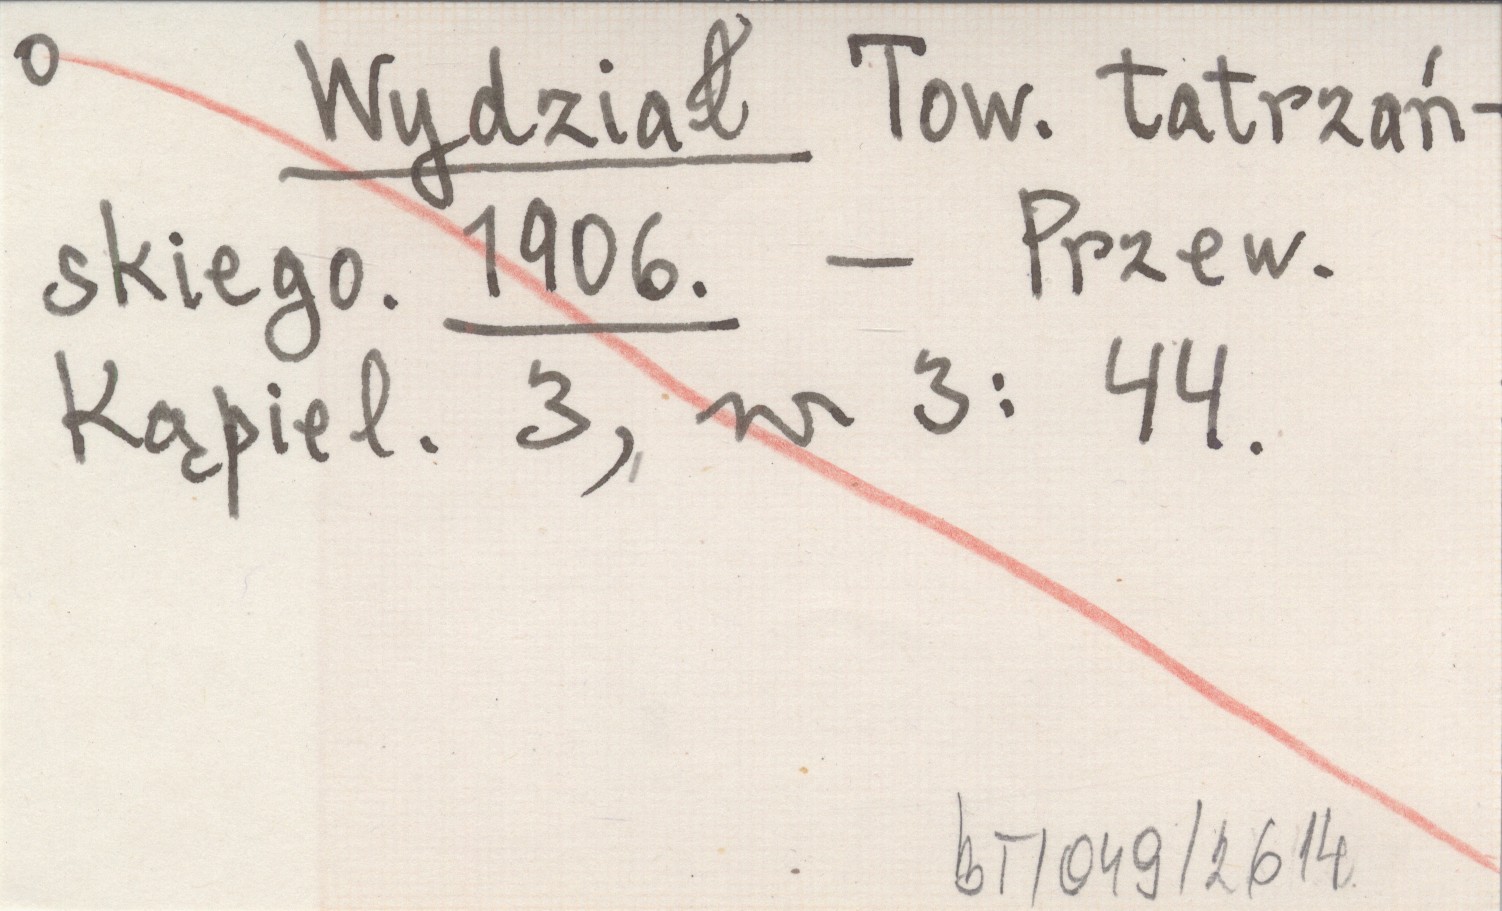 o Wydział Tow. tatrzań-
skiego. 1906. — Przew.
Kąpiel. 3, nr 3: 44.
bT/049/2614